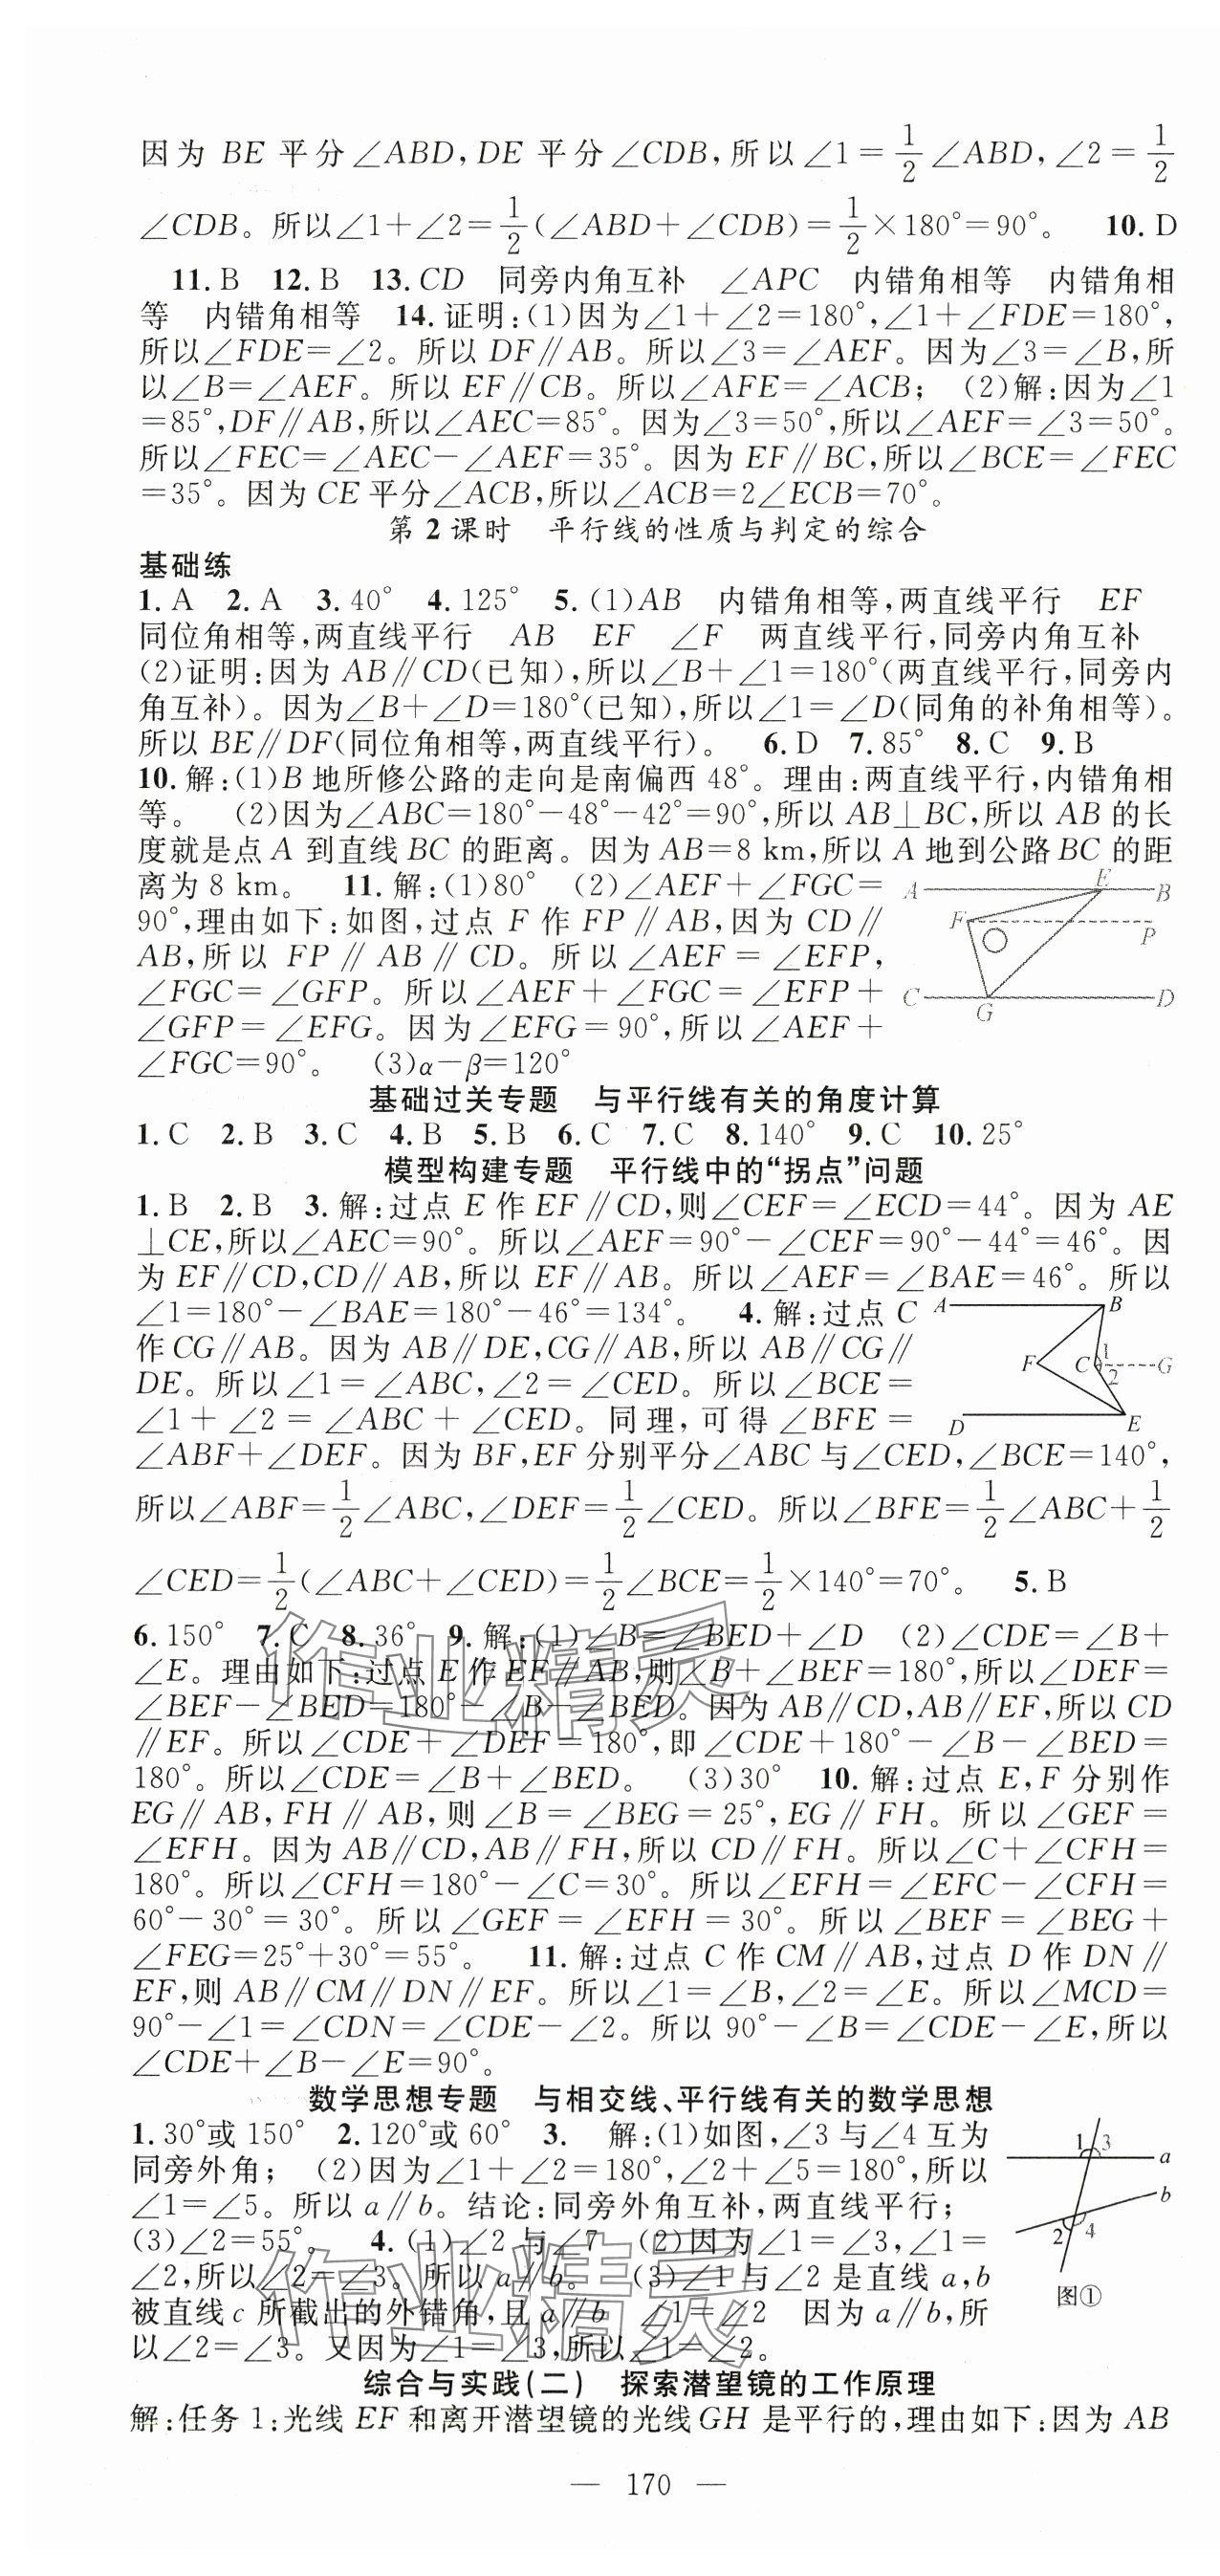 因为 BE 平分∠ABD,DE 平分∠CDB,所以∠1=1/2∠ABD,∠2=1/2
∠CDB。所以∠1+∠2=1/2(∠ABD+∠CDB)=1/2×180°=90°。 10.D
11.B 12.B 13.CD 同旁内角互补 ∠APC 内错角相等 内错角相
等 内错角相等 14.证明:(1)因为∠1+∠2=180°,∠1+∠FDE=180°,
所以∠FDE=∠2。所以 DF∥AB。所以∠3=∠AEF。因为∠3=∠B,所
以∠B=∠AEF。所以 EF∥CB。所以∠AFE=∠ACB; (2)解:因为∠1
=85°,DF∥AB,所以∠AEC=85°。因为∠3=50°,所以∠AEF=∠3=50°。
所以∠FEC=∠AEC-∠AEF=35°。因为 EF∥BC,所以∠BCE=∠FEC
=35°。因为 CE 平分∠ACB,所以∠ACB=2∠ECB=70°。
第 2 课时 平行线的性质与判定的综合
基础练
1.A 2.A 3.40° 4.125° 5.(1)AB 内错角相等,两直线平行 EF
同位角相等,两直线平行 AB EF ∠F 两直线平行,同旁内角互补
(2)证明:因为 AB∥CD(已知),所以∠B+∠1=180°(两直线平行,同旁内
角互补)。因为∠B+∠D=180°(已知),所以∠1=∠D(同角的补角相等)。
所以 BE∥DF(同位角相等,两直线平行)。 6.D 7.85° 8.C 9.B
10.解:(1)B 地所修公路的走向是南偏西 48°。理由:两直线平行,内错角相
等。 (2)因为∠ABC=180°-48°-42°=90°,所以 AB⊥BC,所以 AB 的长
度就是点 A 到直线 BC 的距离。因为 AB=8 km,所以 A 地到公路 BC 的距
离为 8 km。 11.解:(1)80° (2)∠AEF+∠FGC=
90°,理由如下:如图,过点 F 作 FP∥AB,因为 CD∥
AB,所以 FP∥AB∥CD。所以∠AEF=∠EFP,
∠FGC=∠GFP。所以∠AEF+∠FGC=∠EFP+
∠GFP=∠EFG。因为∠EFG=90°,所以∠AEF+
∠FGC=90°。 (3)α-β=120°
A E B
F P
C G D
基础过关专题 与平行线有关的角度计算
1.C 2.B 3.C 4.B 5.B 6.C 7.C 8.140° 9.C 10.25°
模型构建专题 平行线中的“拐点”问题
1.B 2.B 3.解:过点 E 作 EF∥CD,则∠CEF=∠ECD=44°。因为 AE
⊥CE,所以∠AEC=90°。所以∠AEF=90°-∠CEF=90°-44°=46°。因
为 EF∥CD,CD∥AB,所以 EF∥AB。所以∠AEF=∠BAE=46°。所以
∠1=180°-∠BAE=180°-46°=134°。 4.解:过点 C
作 CG∥AB。因为 AB∥DE,CG∥AB,所以 AB∥CG∥
DE。所以∠1=∠ABC,∠2=∠CED。所以∠BCE=
∠1+∠2=∠ABC+∠CED。同理,可得∠BFE=
A B
F C 1 2 G
D E
∠ABF+∠DEF。因为 BF,EF 分别平分∠ABC 与∠CED,∠BCE=140°,
所以∠ABF=1/2∠ABC,∠DEF=1/2∠CED。所以∠BFE=1/2∠ABC+1/2
∠CED=1/2(∠ABC+∠CED)=1/2∠BCE=1/2×140°=70°。 5.B
6.150° 7.C 8.36° 9.解:(1)∠B=∠BED+∠D (2)∠CDE=∠B+
∠E。理由如下:过点 E 作 EF∥AB,则∠B+∠BEF=180°,所以∠DEF=
∠BEF-∠BED=180°-∠B-∠BED。因为 AB∥CD,AB∥EF,所以 CD
∥EF。所以∠CDE+∠DEF=180°,即∠CDE+180°-∠B-∠BED=
180°。所以∠CDE=∠B+∠BED。 (3)30° 10.解:过点 E,F 分别作
EG∥AB,FH∥AB,则∠B=∠BEG=25°,EG∥FH。所以∠GEF=
∠EFH。因为 AB∥CD,AB∥FH,所以 CD∥FH。所以∠C+∠CFH=
180°。所以∠CFH=180°-∠C=30°。所以∠EFH=∠EFC-∠CFH=
60°-30°=30°。所以∠GEF=∠EFH=30°。所以∠BEF=∠BEG+
∠FEG=25°+30°=55°。 11.解:过点 C 作 CM∥AB,过点 D 作 DN∥
EF,则 AB∥CM∥DN∥EF。所以∠1=∠B,∠2=∠E。所以∠MCD=
90°-∠1=∠CDN=∠CDE-∠2。所以 90°-∠B=∠CDE-∠E,所以
∠CDE+∠B-∠E=90°。
数学思想专题 与相交线、平行线有关的数学思想
1.30°或 150° 2.120°或 60° 3. 解:(1)如图,∠3 与∠4 互为
同旁外角; (2)因为∠1+∠2=180°,∠2+∠5=180°,所以
∠1=∠5。所以 a∥b。结论:同旁外角互补,两直线平行;
(3)∠2=55°。 4.(1)∠2 与∠7 (2)因为∠1=∠3,∠1=
∠2,所以∠2=∠3。所以 a∥b。 (3)∠1 与∠2 是直线 a,b
被直线 c 所截出的外错角,且 a∥b ∠1=∠2 因为 a∥b,所
以∠2=∠3。又因为∠1=∠3,所以∠1=∠2。
1 3 a
b
2 4
图①
综合与实践(二) 探索潜望镜的工作原理
解:任务 1:光线 EF 和离开潜望镜的光线 GH 是平行的,理由如下:因为 AB
— 170 —
作业精灵
作业精灵